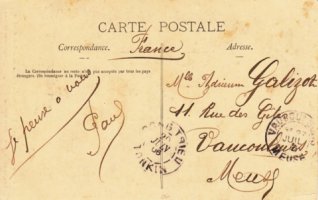 CARTE POSTALE
Correspondance.
France
Adresse.
La Correspondance au recto n'est pas acceptée par tous les pays
étrangers. (Se renseigner à la Poste)
Je pense à vous
Paul
Mlle
Galizot
11 Rue des
Vaucouleurs
Meuse
TONKIN
MEUSE